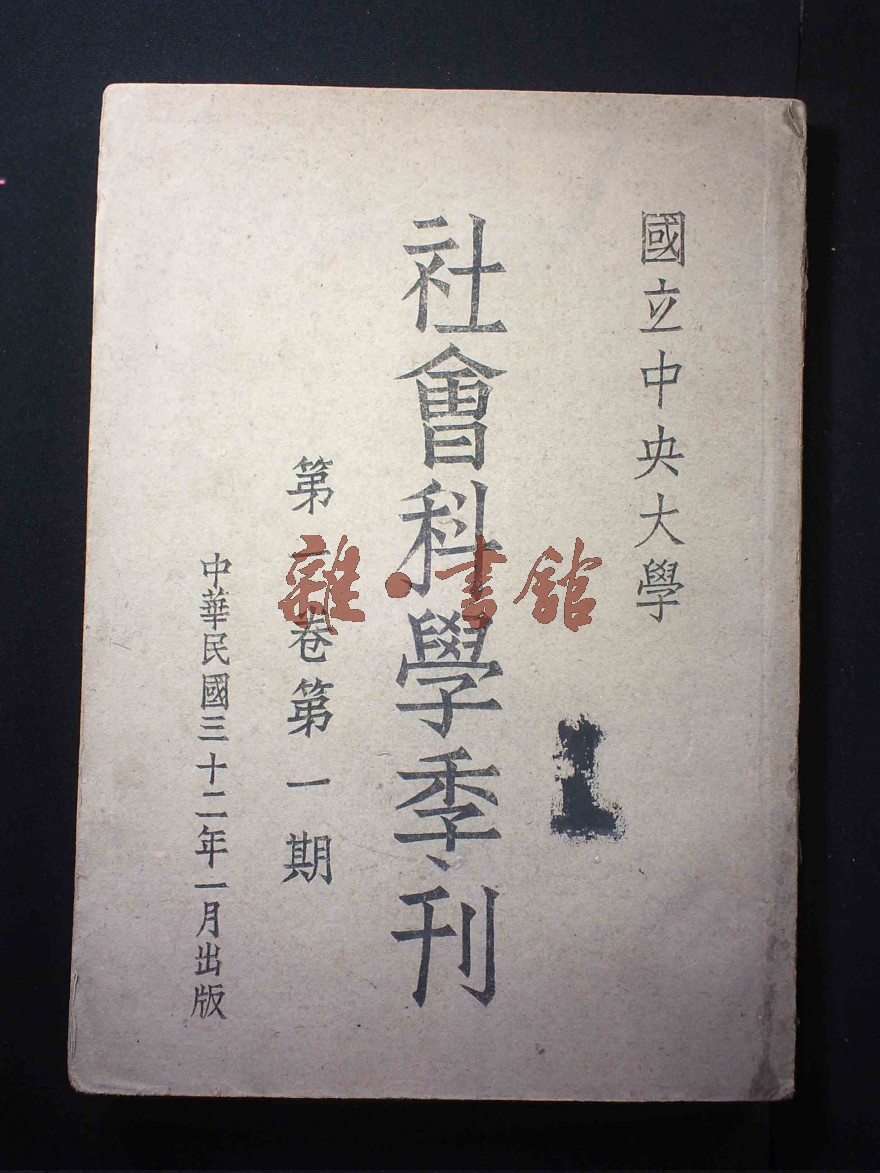 國立中央大學
社會科學季刊
第一卷第一期
中華民國三十二年一月出版
1
雜·書館